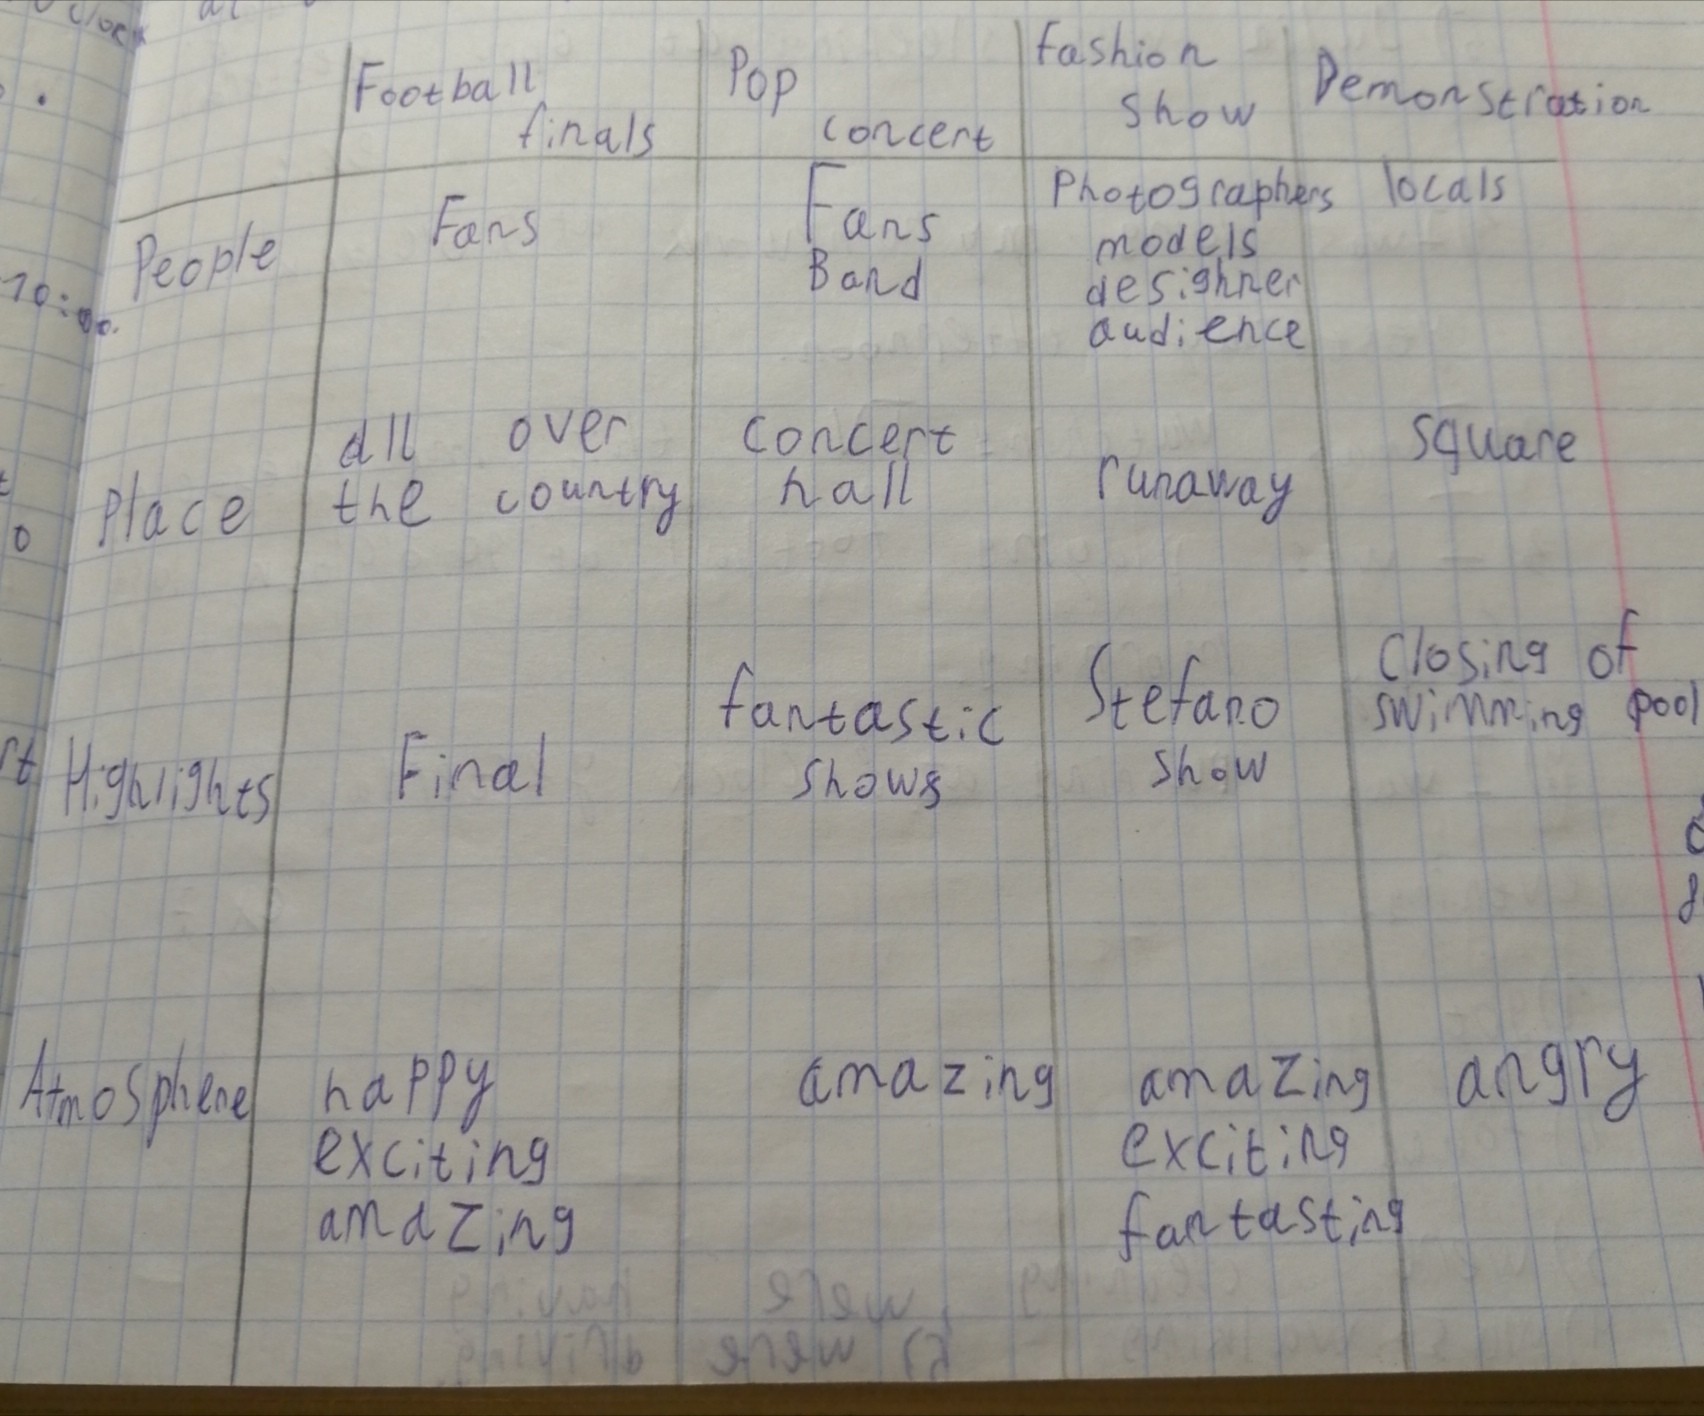 Football finals
Pop concert
fashion show
Demonstration
People
Fans
Fans
Band
Photographers
models
desighner
audience
locals
Place
all over
the country
concert
hall
runaway
square
Highlights
Final
fantastic
shows
Stefano
show
Closing of
swimming pool
Atmosphere
happy
exciting
amazing
amazing
amazing
exciting
fantasting
angry
10:00.